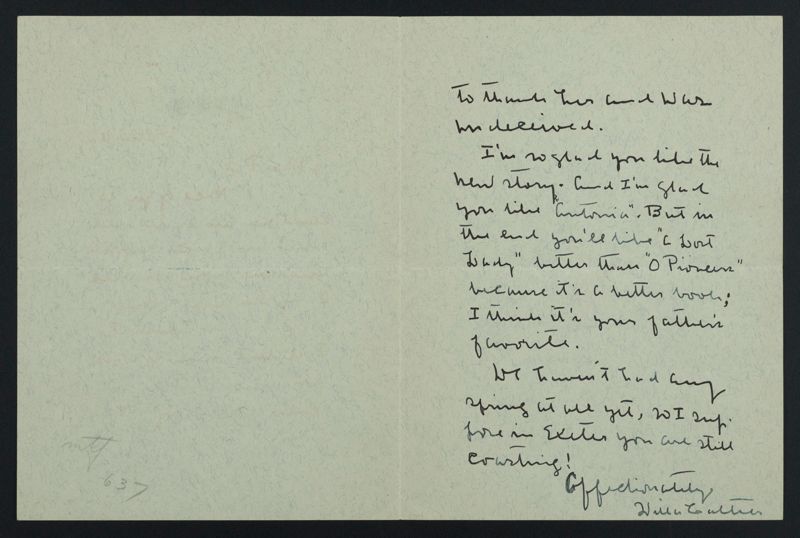 to thank her and was
undeceived.
I'm so glad you like the
new story. And I'm glad
you like "Antonia". But in
the end you'll like "A Lost
Lady" better than "O Pioneers"
because it's a better book;
I think it's your father's
favorite.
We haven't had any
spring at all yet, so I sup-
pose in Exeter you are still
coasting!
Affectionately
Willa Cather
637